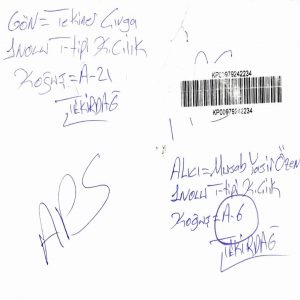 GÖN= Tekines Cırga
1 NOLU T-tipi K.Cilik
Koğuş = A-21
TEKİRDAĞ
KP00979242234
KP00979242234
ALICI= Musab Yasir Özen
1 NOLU T-tipi K.Cilik
Koğuş = A-6
TEKİRDAĞ
APS